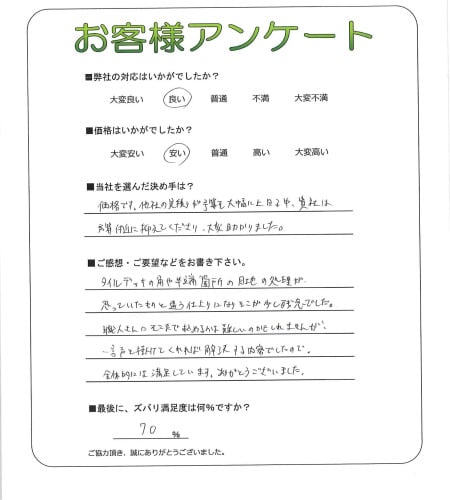 お客様アンケート
■弊社の対応はいかがでしたか？
大変良い 良い 普通 不満 大変不満
■価格はいかがでしたか？
大変安い 安い 普通 高い 大変高い
■当社を選んだ決め手は？
価格です。他社の見積りが予算を大幅に上回る中、貴社は
予算付近に抑えてくださり、大変助かりました。
■ご感想・ご要望などをお書き下さい。
タイルデッキの角や端箇所の目地の処理が
思っていたものと違う仕上りになりそこが少し残念でした。
職人さんにそこまで求めるのは難しいのかもしれませんが、
一言声を掛けてくれれば解決する内容でしたので。
全体的には満足しています。ありがとうございました。
■最後に、ズバリ満足度は何%ですか？
70 %
ご協力頂き、誠にありがとうございました。